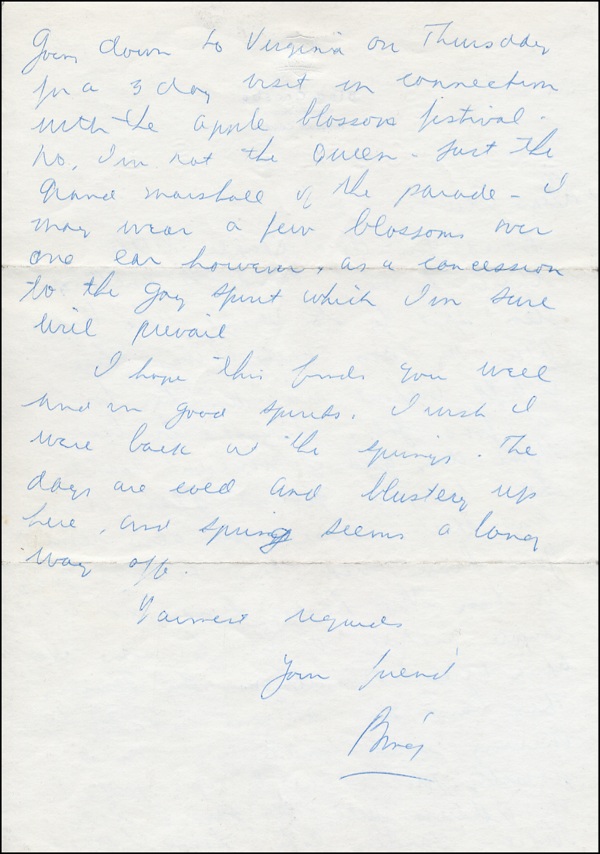 Going down to Virginia on Thursday
for a 3 day visit in connection
with the apple blossom festival.
No, I'm not the Queen - Just the
Grand marshall of the parade - I
may wear a few blossoms over
one ear however, as a concession
to the gay spirit which I'm sure
will prevail
I hope this finds you well
and in good spirits. I wish I
were back at the springs. The
days are cold and blustery up
here, and spring seems a long
way off.
Warmest regards
Your friend